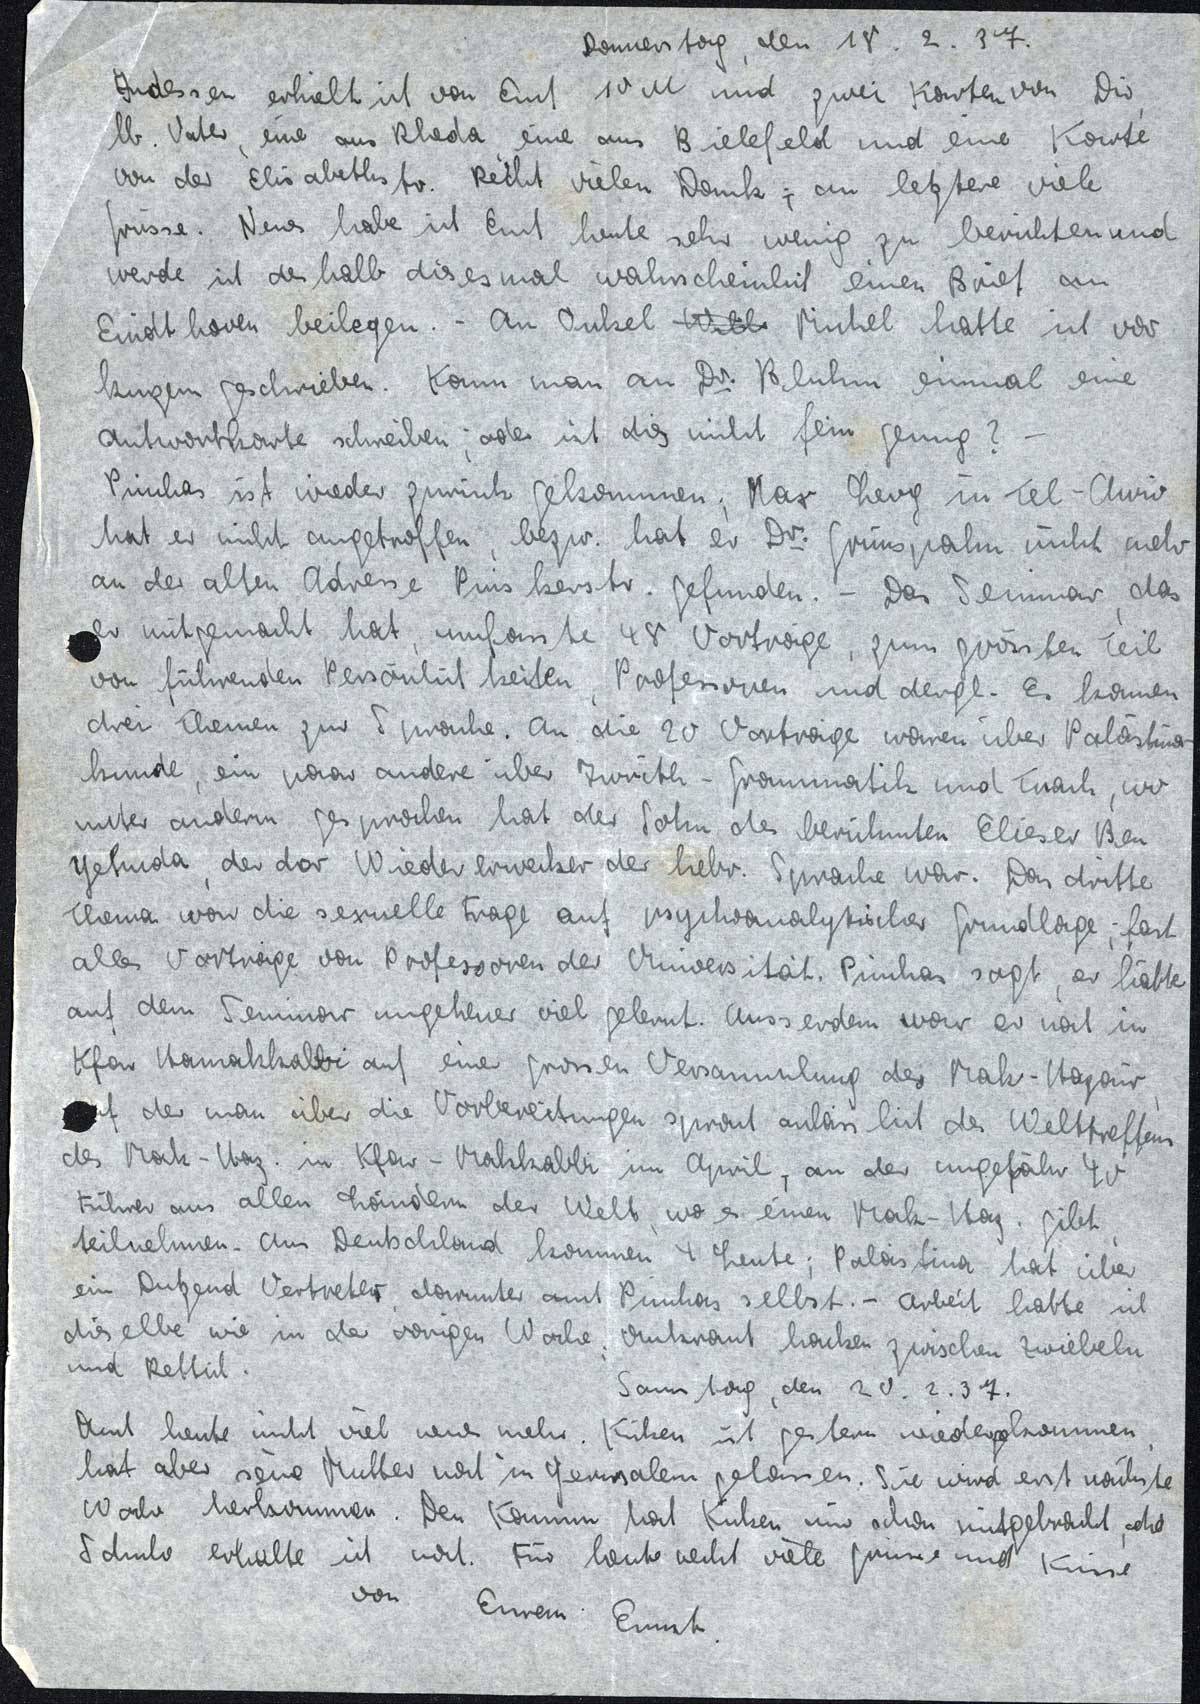 Donnerstag, den 18. 2. 37.
Indessen erhielt ich von Euch 10 M und zwei Karten von Dir,
lb. Vater, eine aus Rheda eine aus Bielefeld und eine Karte
von der Elisabethstr. Recht vielen Dank; an letztere viele
Grüsse. Neues habe ich Euch heute sehr wenig zu berichten und
werde ich deshalb diesesmal wahrscheinlich einen Brief an
Eindthoven beilegen. - An Onkel Michel hatte ich vor
kurzem geschrieben. Kann man an Dr. Bluhm einmal eine
Antwortkarte schreiben; oder ist dies nicht fein genug? -
Pinchas ist wieder zurück gekommen; Max Levy in Tel-Awiv
hat er nicht angetroffen, bezw. hat er Dr. Grünspahn nicht mehr
an der alten Adresse Pinskerstr. gefunden. - Das Seminar, das
er mitgemacht hat, umfasste 48 Vorträge, zum grössten Teil
von führenden Persönlichkeiten, Professoren und dergl. Es kamen
drei Themen zur Sprache. An die 20 Vorträge waren über Palästina-
kunde, ein paar andere über Iwrith-Grammatik und Tnach, wo
unter anderm gesprochen hat der Sohn des berühmten Elieser Ben
Yehuda, der der Wiedererwecker der hebr. Sprache war. Das dritte
Thema war die sexuelle Frage auf psychoanalytischer Grundlage; fast
alles Vorträge von Professoren der Universität. Pinchas sagt, er hätte
auf dem Seminar ungeheuer viel gelernt. Ausserdem war er noch in
Kfar Hamakkabbi auf einer grossen Versammlung des Mak-Hazair,
auf der man über die Vorbereitungen sprach anlässlich des Welttreffens
des Mak-Haz. in Kfar-Makkabbi im April, an der ungefähr 40
Führer aus allen Ländern der Welt, wo es einen Mak-Haz. gibt,
teilnehmen. Aus Deutschland kommen 4 Leute; Palästina hat über
ein Dutzend Vertreter, darunter auch Pinchas selbst. - Arbeit hatte ich
dieselbe wie in der vorigen Woche; Unkraut hacken zwischen Zwiebeln
und Rettich.
Samstag, den 20. 2. 37.
Auch heute nicht viel neues mehr. Küken ist gestern wiedergekommen,
hat aber seine Mutter noch in Yerusalem gelassen. Sie wird erst nächste
Woche herkommen. Den Kamm hat Küken mir schon mitgebracht, die
Schuhe erhalte ich noch. Für heute recht viele Grüsse und Küsse
von Eurem Ernst.